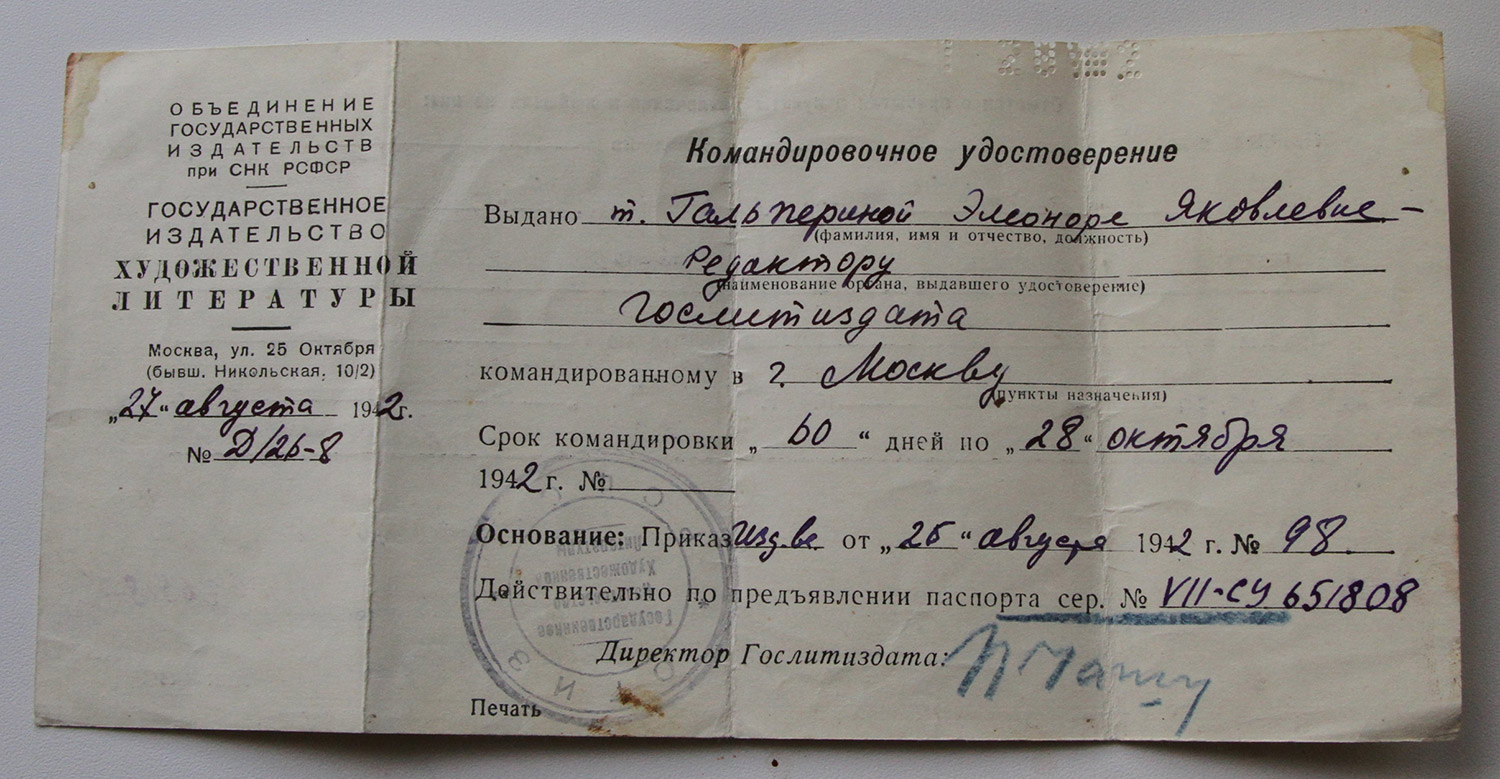 ОБЪЕДИНЕНИЕ
ГОСУДАРСТВЕННЫХ
ИЗДАТЕЛЬСТВ
при СНК РСФСР
ГОСУДАРСТВЕННОЕ
ИЗДАТЕЛЬСТВО
ХУДОЖЕСТВЕННОЙ
ЛИТЕРАТУРЫ
Москва, ул. 25 Октября
(бывш. Никольская, 10/2)
„27“ августа 1942 г.
№ Д/26-8
Командировочное удостоверение
Выдано т. Гальпериной Элеоноре Яковлевне –
(фамилия, имя и отчество, должность)
Редактору
(наименование органа, выдавшего удостоверение)
Гослитиздата
командированному в г. Москву
(пункты назначения)
Срок командировки „60“ дней по „28“ октября
1942 г. №
Основание: Приказ Изд.ва от „26“ августа 1942 г. № 98
Действительно по предъявлении паспорта сер. № VII-СУ 651808
Директор Гослитиздата:
Печать
Государственное
Издательство
Художественной
Литературы
ОГИЗ